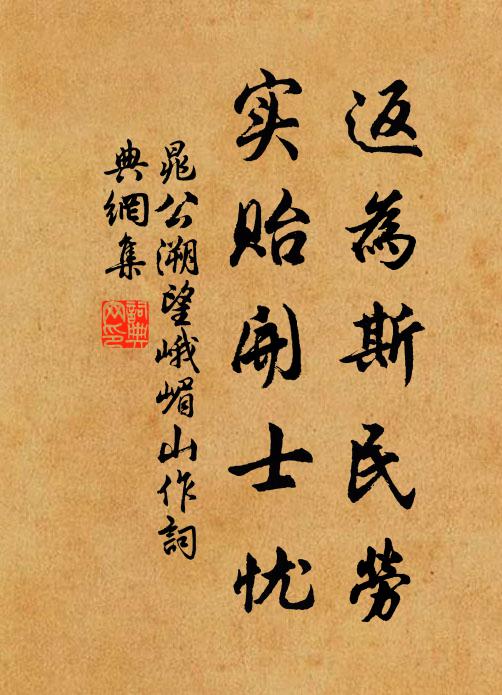 返為斯民勞
实贻開士忧
晁公溯望峨嵋山作詞
典網集
詞典網印